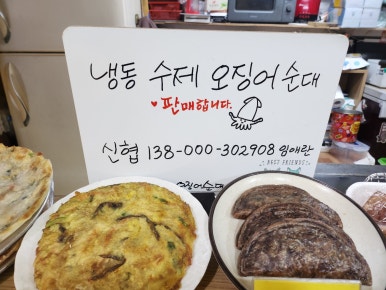 냉동 수제 오징어순대
판매합니다.
신협 138-000-302908 임애란
BEST FRIENDS
오징어순대